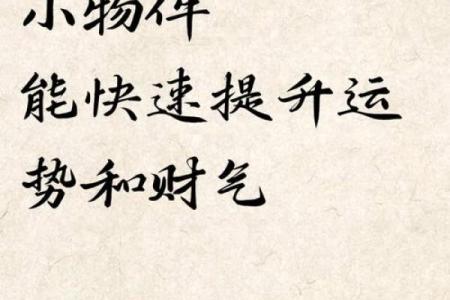 小物件
能快速提升运
势和财气